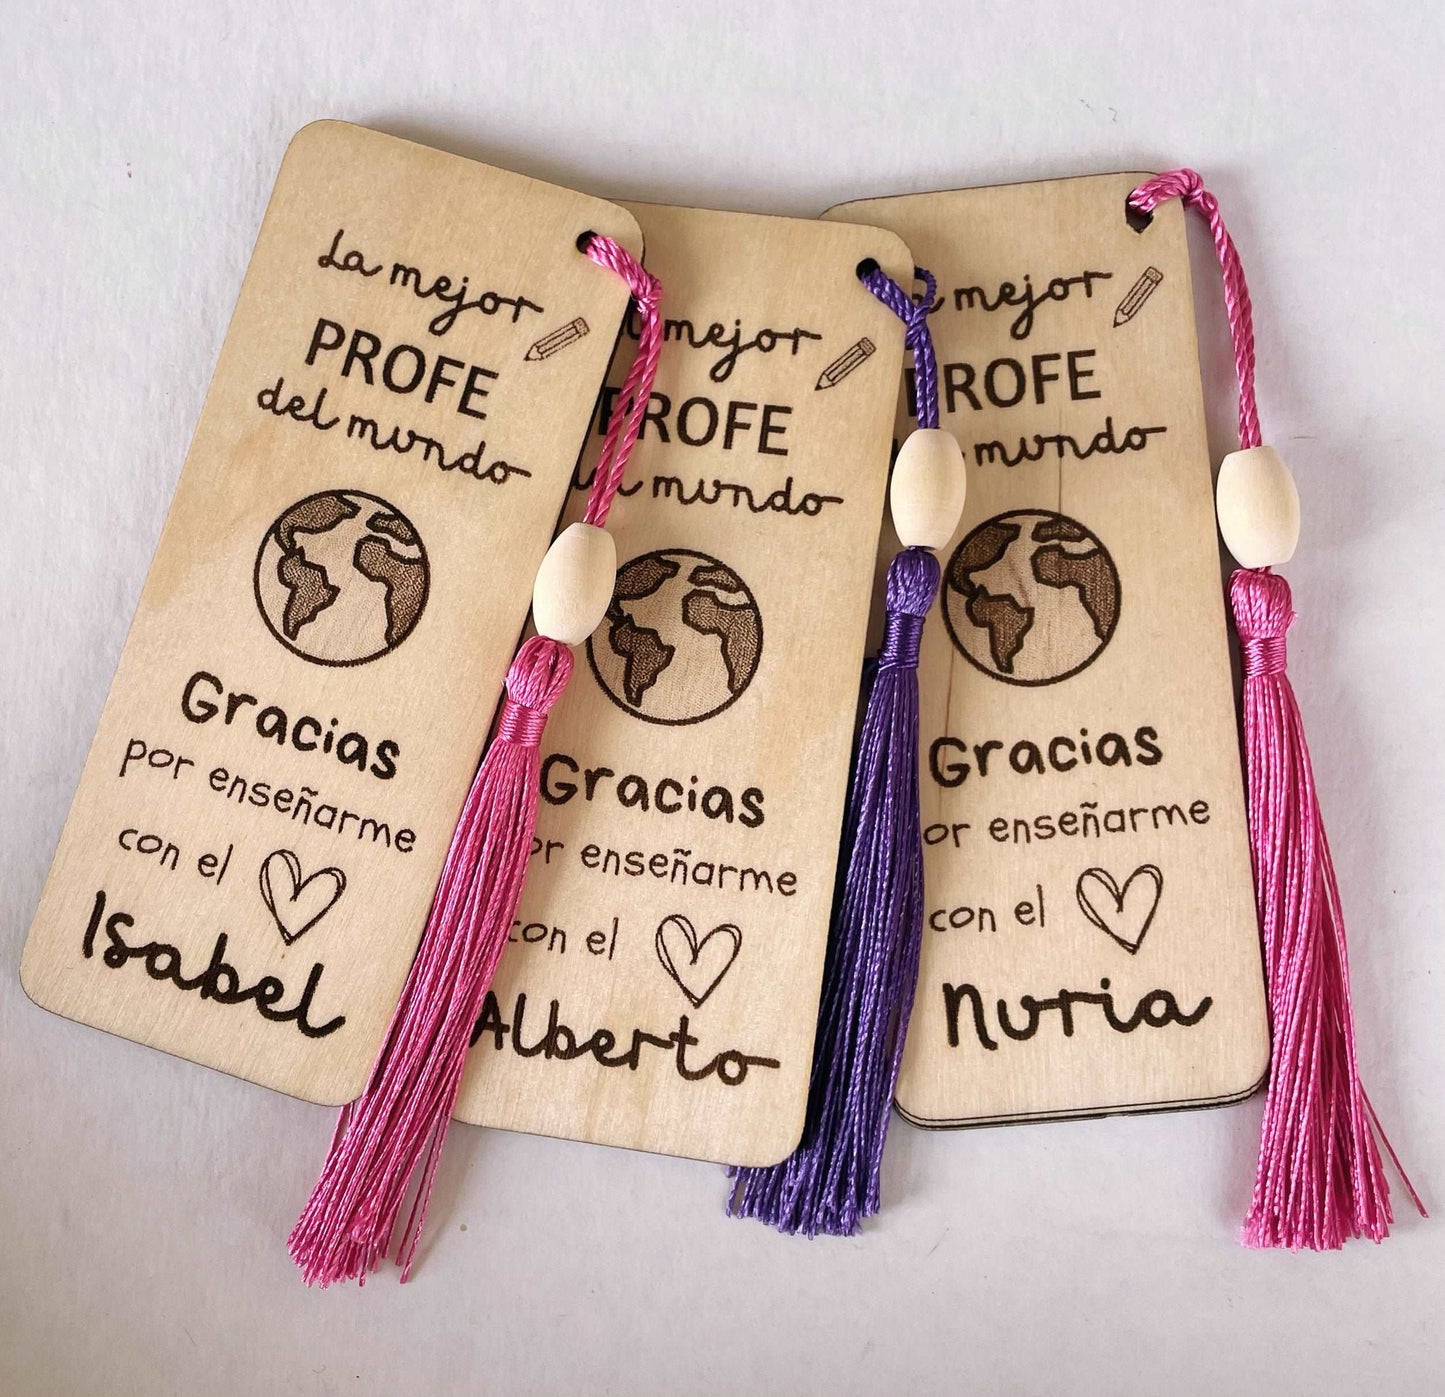 La mejor
PROFE
del mundo
Gracias
por enseñarme
con el
Isabel
mejor
PROFE
mundo
Gracias
enseñarme
con el
Alberto
mejor
PROFE
mundo
Gracias
enseñarme
con el
Nuria